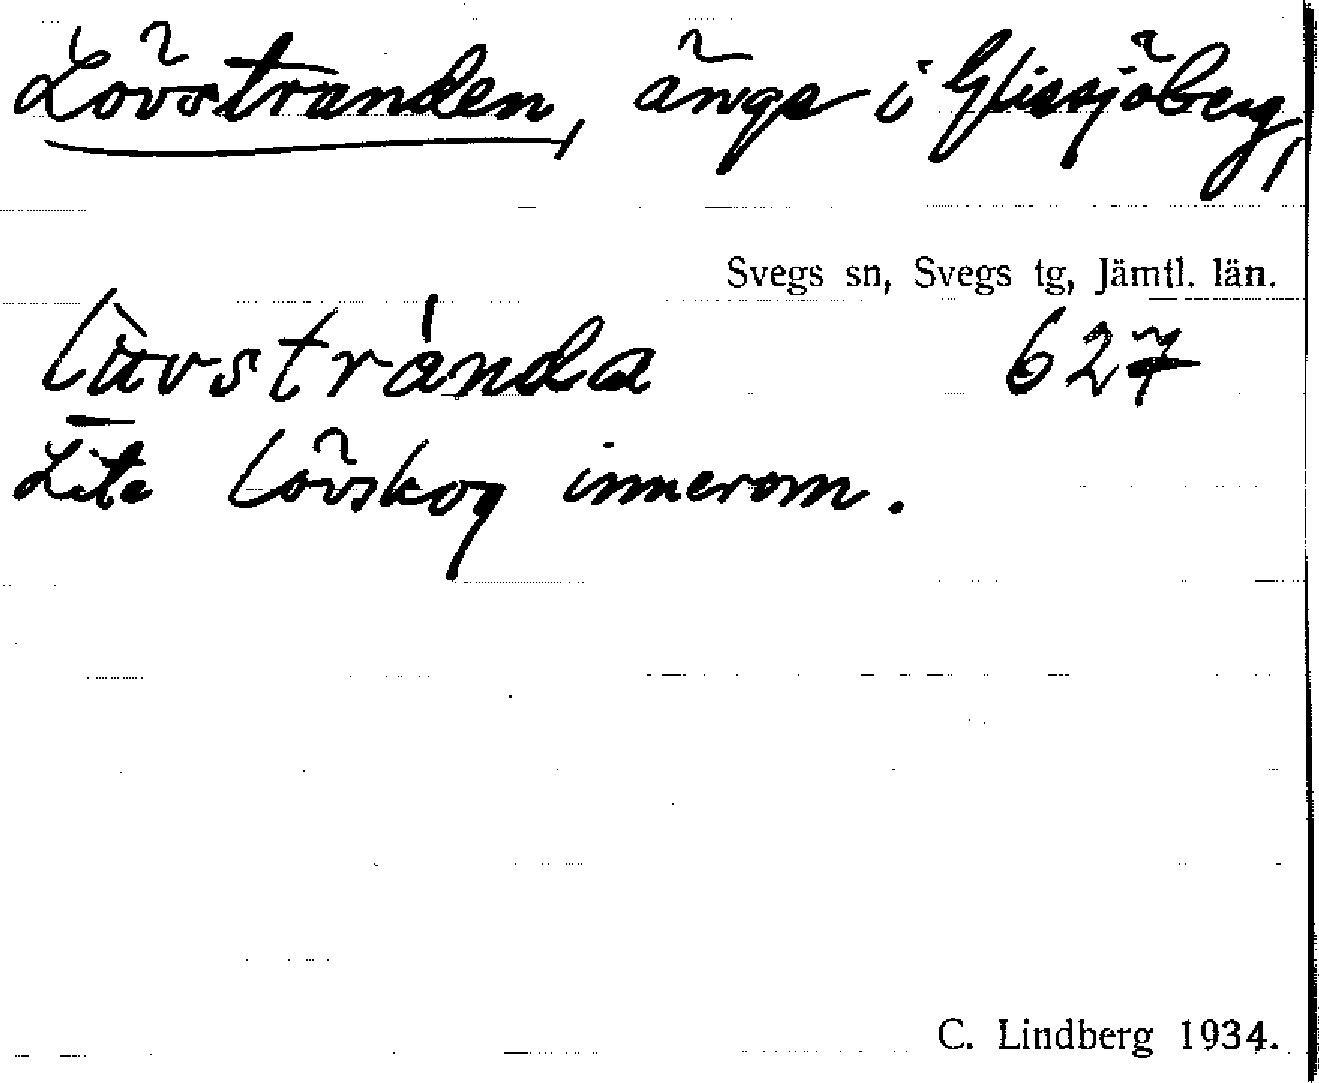 Lövstranden, ängs i Glissjöberg,
Svegs sn, Svegs tg, Jämtl. län.
627
Lite lövskog innerom.
C. Lindberg 1934.